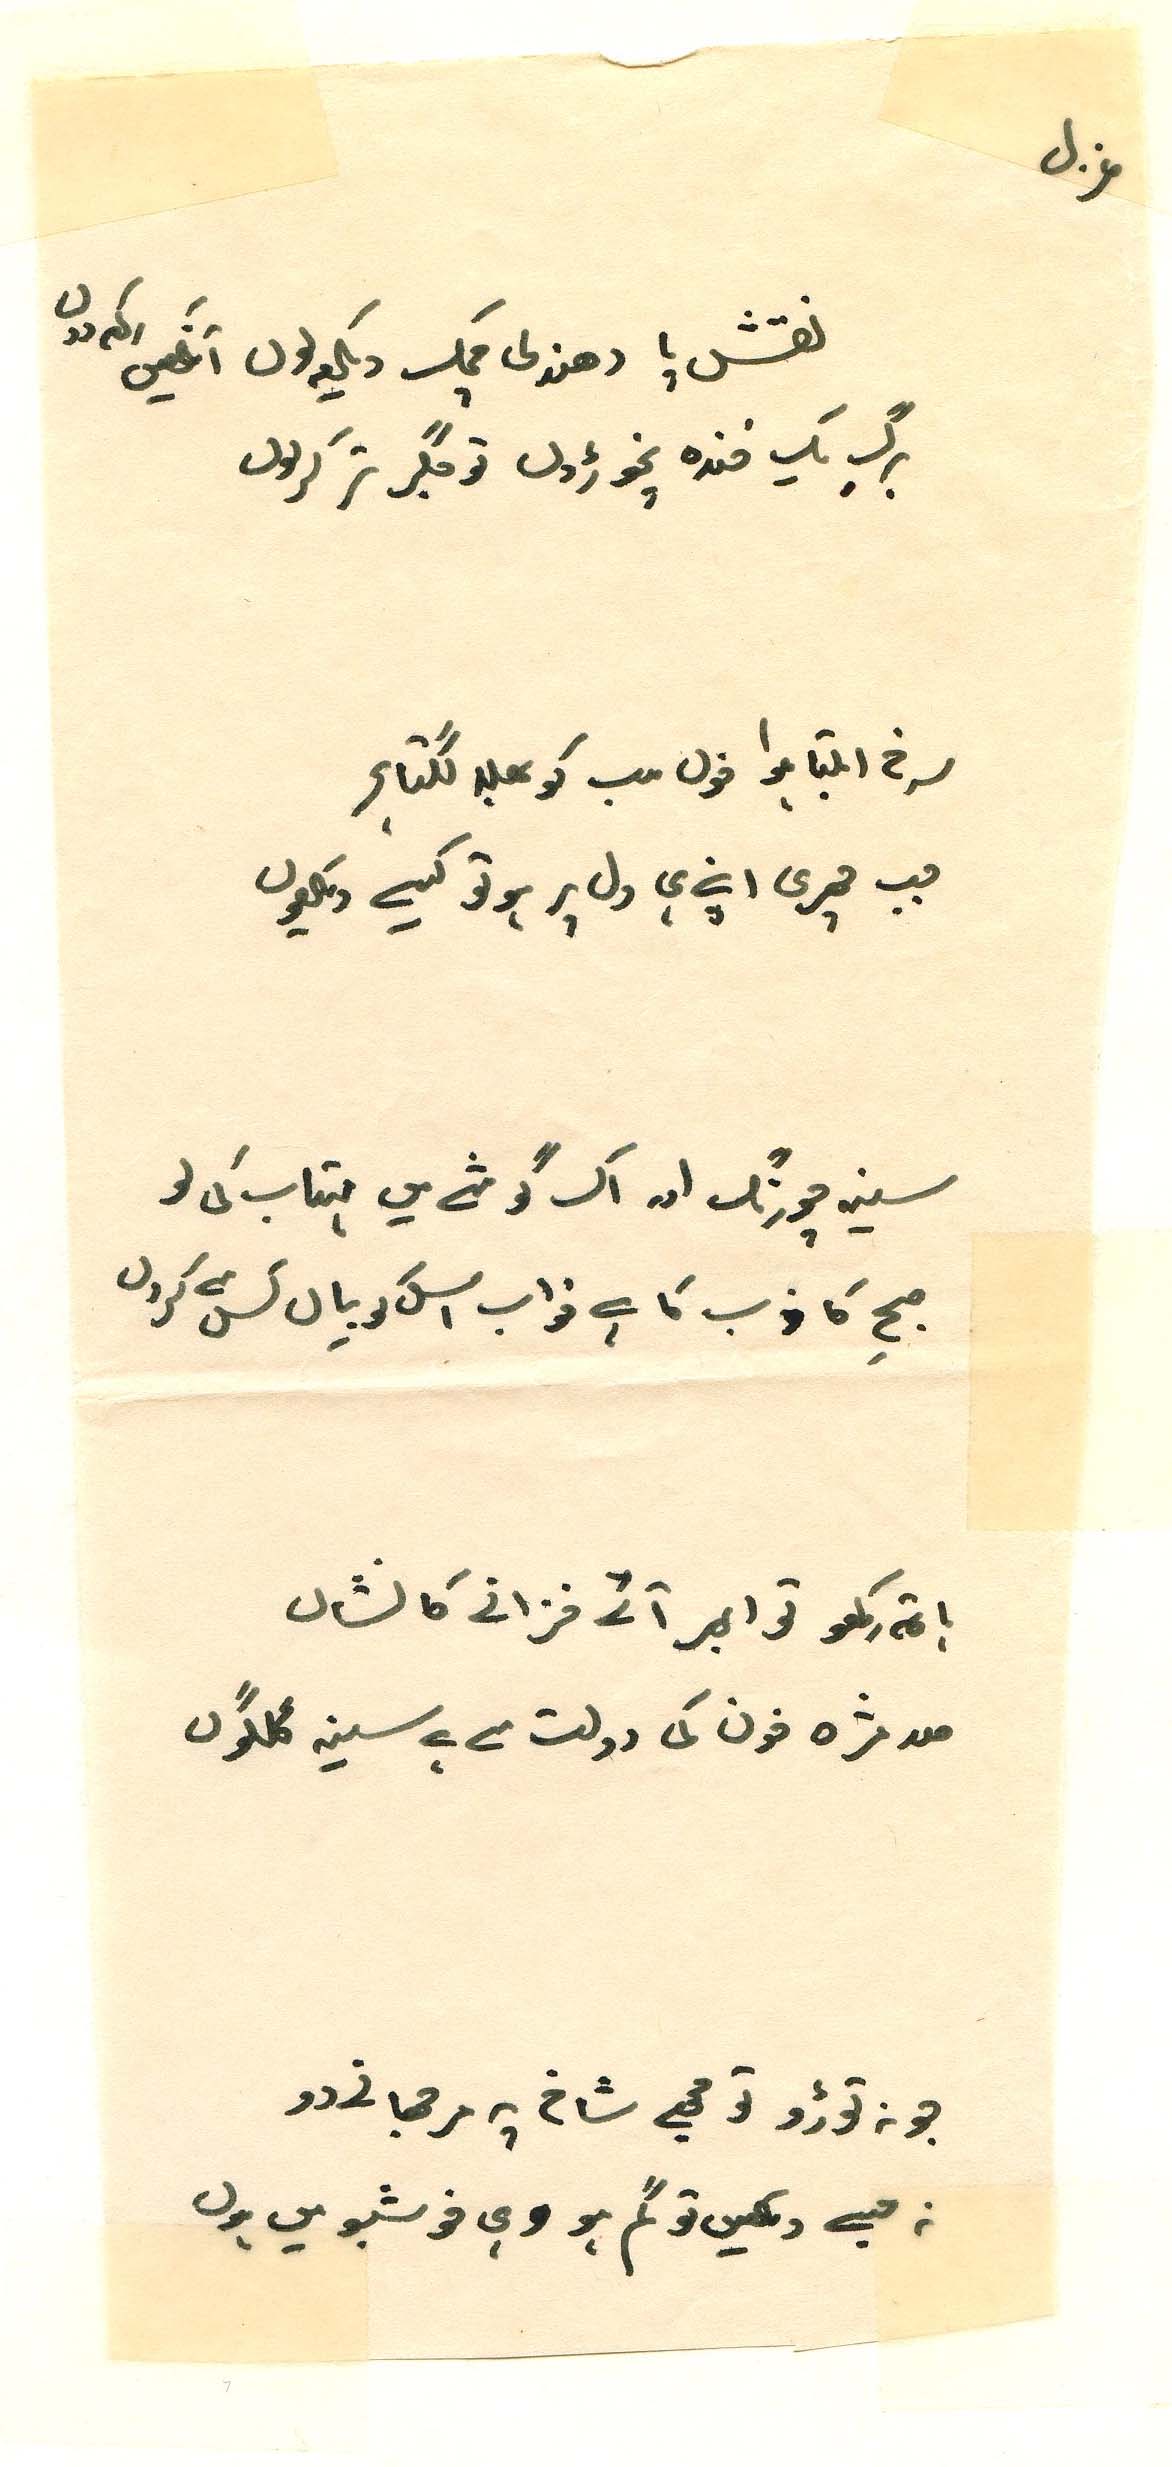 غزل
نقش پا دھندلی چمک دیکھ لوں آنکھیں رکھ دوں
برگِ یک خندہ نچوڑوں تو جگر تر کر لوں
سرخ ابلتا ہوا خوں سب کو بھلا لگتا ہے
جب چھری اپنے ہی دل پر ہو تو کیسے دیکھوں
سینہ چورنگ اور اک گوشے میں مہتاب کی لو
صبحِ کاذب کا ہے خواب اس کو بیاں کس سے کروں
ہاتھ رکھو تو ابھر آئے خزانے کا نشاں
صد مژہ خون کی دولت سے ہے سینہ گلگوں
جو نہ توڑو تو مجھے شاخ پہ مرجھانے دو
نہ جسے دیکھیں تو گم ہو وہی خوشبو میں ہوں